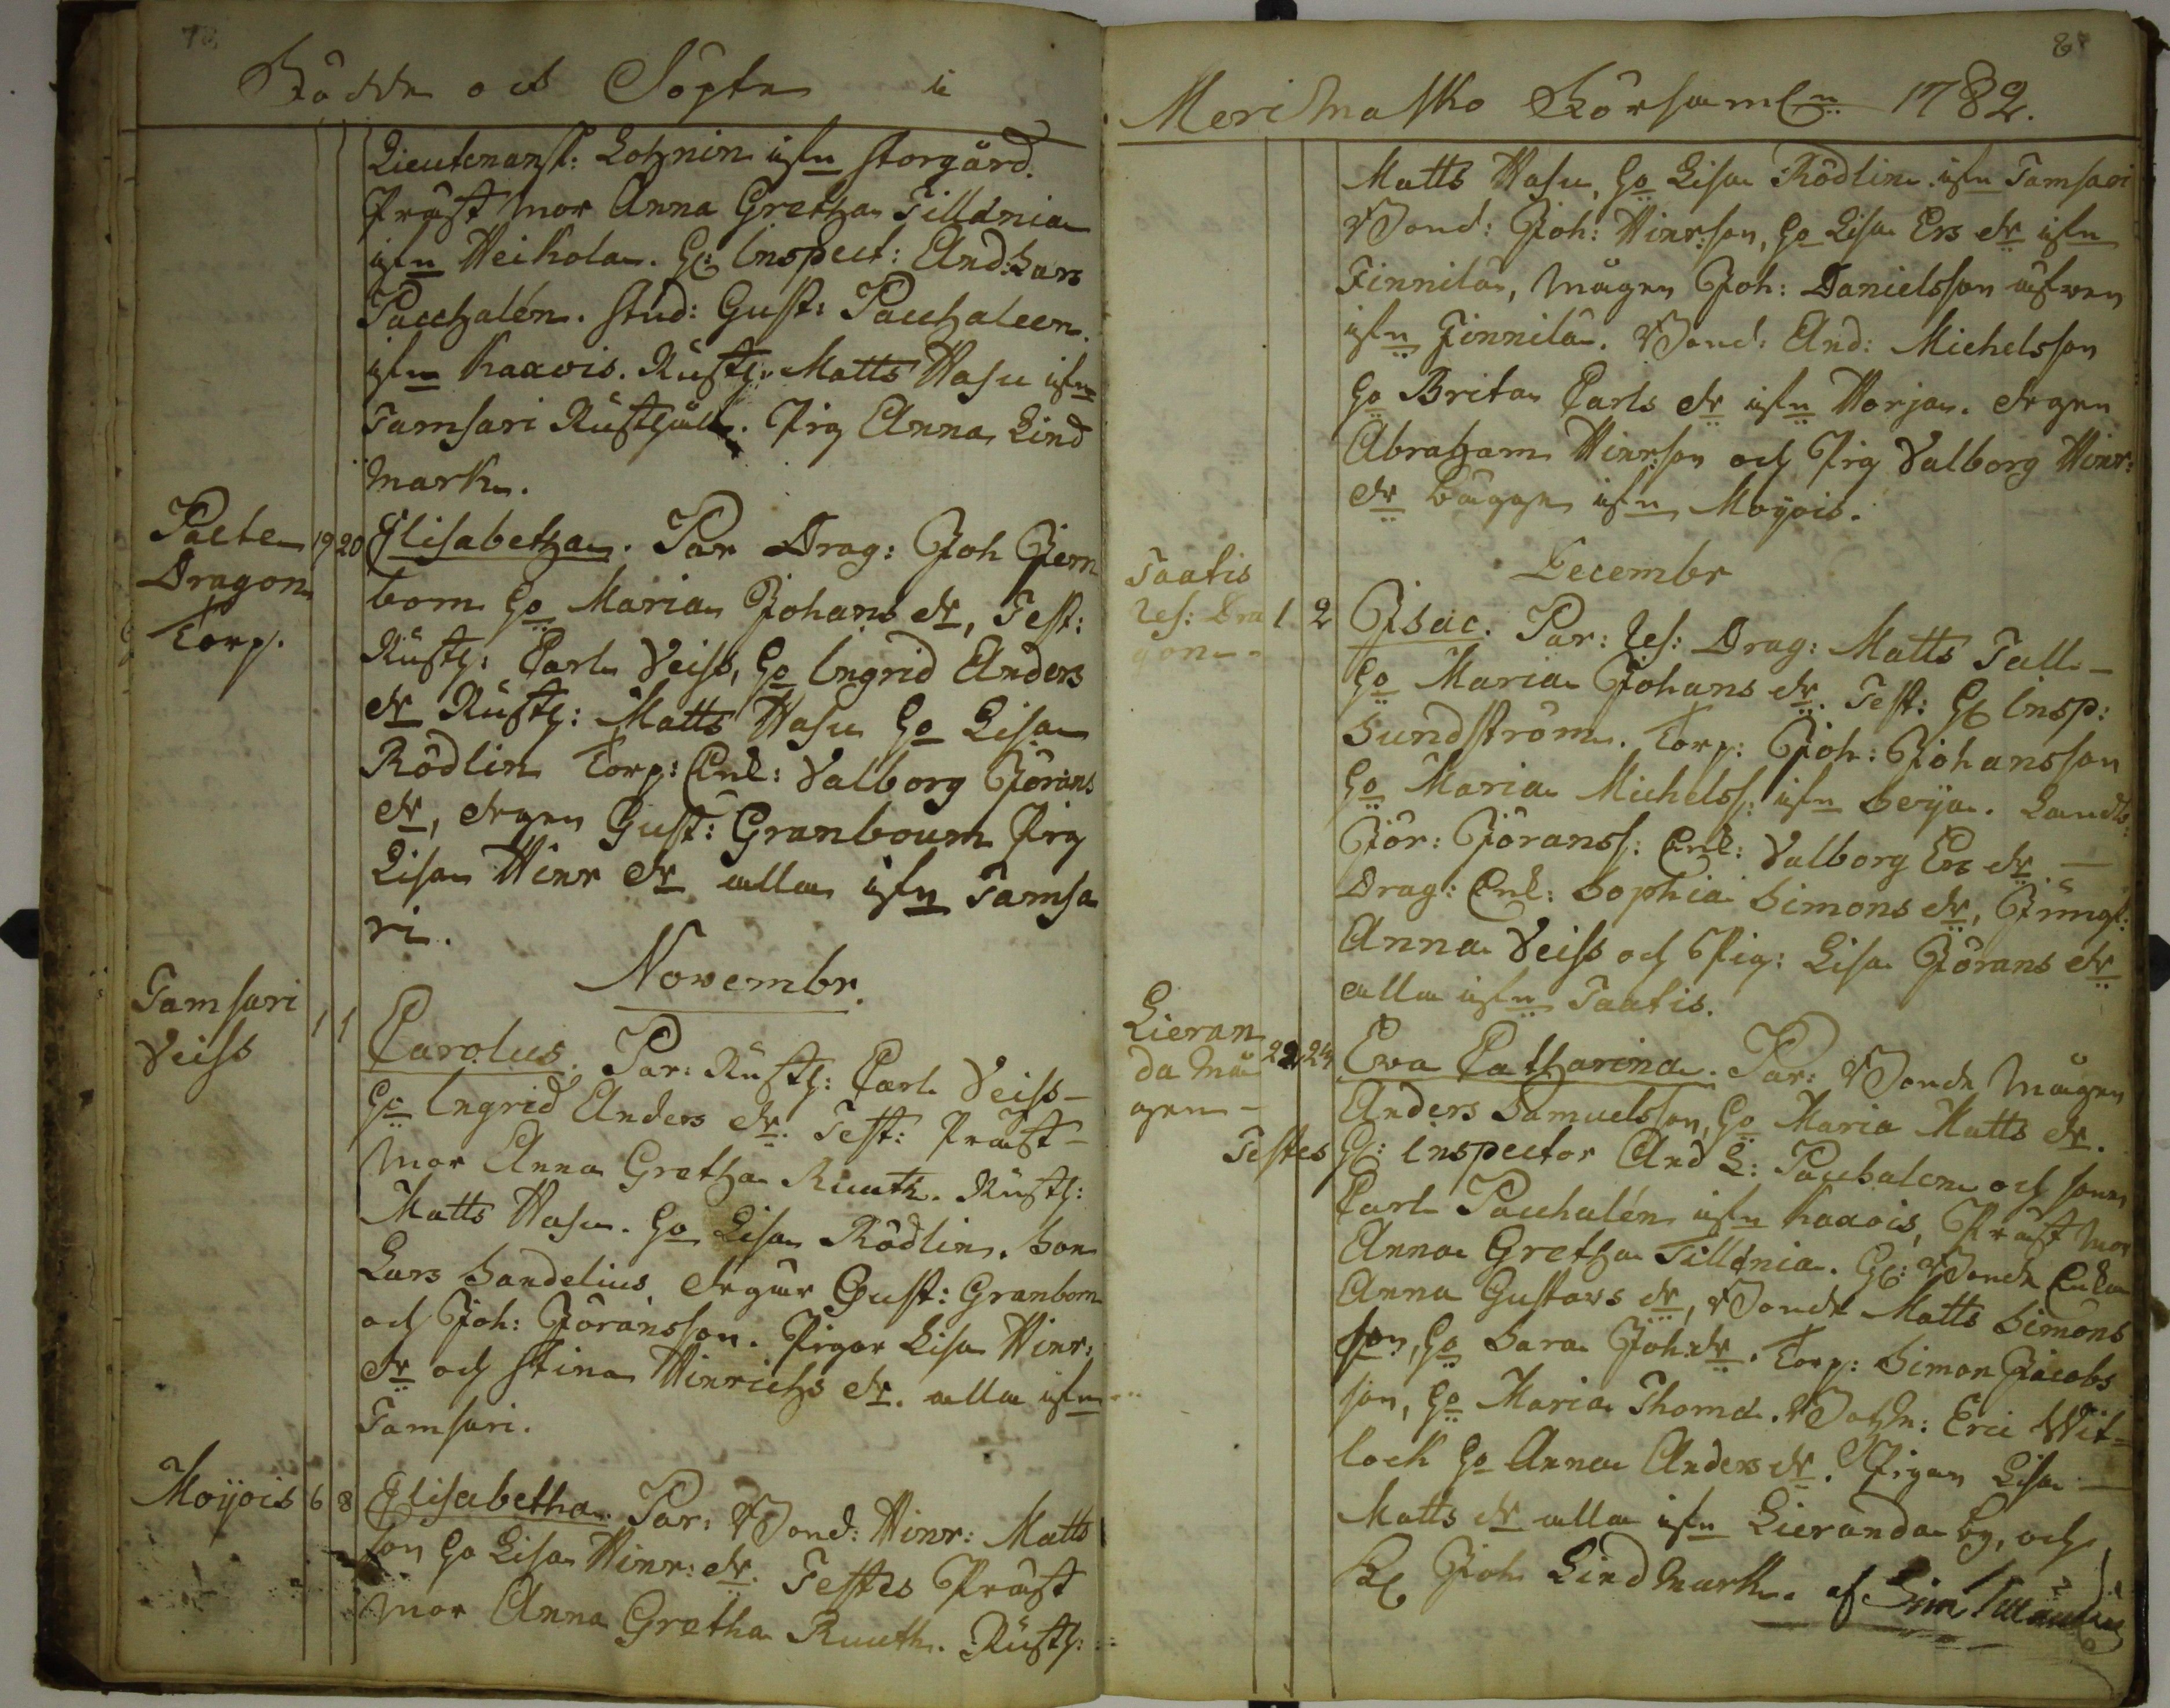 78
Födde och Döpte i
Lieutenansk: Lohnin ifrn Storgård.
Präst mor Anna Gretha Tillænia
ifrn Heikola. H: Inspect: And: Lars
Pacchalén. Stud: Gust: Pacchaleen
ifrn Kaxois. Rusth: Matts Hasu ifrn
Tamsari Rusthåll. Pig Anna Lind
mark.
Paete 19 20 Elisabetha. Par Drag: Joh Jern
Dragon bom ho Maria Johans dr, Test:
Torp. Rusth: Carl Veiss, ho Ingrid Anders
dr Rusth: Matts Hasu ho Lisa
Rödlin Torp: Enk: Valborg Jörans
dr, drgen Gust: Granboum Pig
Lisa Hinr dr alla ifrn Tamsa
ri.
Novembr.
Tamsari 1 1 Carolus. Par: Rusth: Carl Veiss
Veiss ho Ingrid Anders dr. Test: Präst
mor Anna Gretha Ruuth. Rusth:
Matts Hasu. ho Lisa Rödlin. Son
Lars Sandelius, drgar Gust: Granbom
och Joh: Joransson. Pigor Lisa Hinr:
dr och Stina Hinrichs dr. alla ifrn
Tamsari.
Moijois 6 8 Elisabetha. Par: Bond: Hinr: Matts
son ho Lisa Hinr: dr. Testes Präst
mor Anna Gretha Ruuth. Rusth:
Merimasko Församln: 1782.
Matts Hasu, ho Lisa Rödlin ifrn Tamsari
Bond: Joh: Hinr:son, ho Lisa Ers dr ifrn
Finnila, mågen Joh: Danielsson äfwen
ifrn Finnila. Bond: And: Michelsson
ho Brita Carls dr ifrn Horja. drgen
Abraham Hinr:son och Pig Valborg Hinr:
dr bägge ifrn Moijois.
Decembr
Taatis 1 2 Isac. Par: Res: Drag: Matts Tall
Res: Dra ho Maria Johans dr. Test: H Insp:
gon Sundström. Torp: Joh: Johansson
ho Maria Michelss: ifrn Seija. Landb:
Jör: Jöranss: Enk: Valborg Ers dr
Drag: Enk: Sophia Simons dr, Jungf:
Anna Veiss och Pig: Lisa Jörans dr
alla ifrn Taatis.
Lieran 22 24 Eva Catharina. Par: Bonde mågen
da må Anders Samuelsson, ho Maria Matts dr.
gen
Testes H: Inspector And L: Pacchalen och sonen
Carl Pacchalén ifrn Kaxois, Präst mor
Anna Gretha Tillænia. H: Bonde Enkan
Anna Gustavs dr, Bonde Matts Simons
son, ho Sara Joh: dr. Torp: Simon Jacobs
son, ho Maria Thomæ. Båtzm: Eric Wit
lock ho Anna Anders dr. Pigan Lisa
Matts dr alla ifrn Lieranda by, och
Kl Joh Lindmark. af